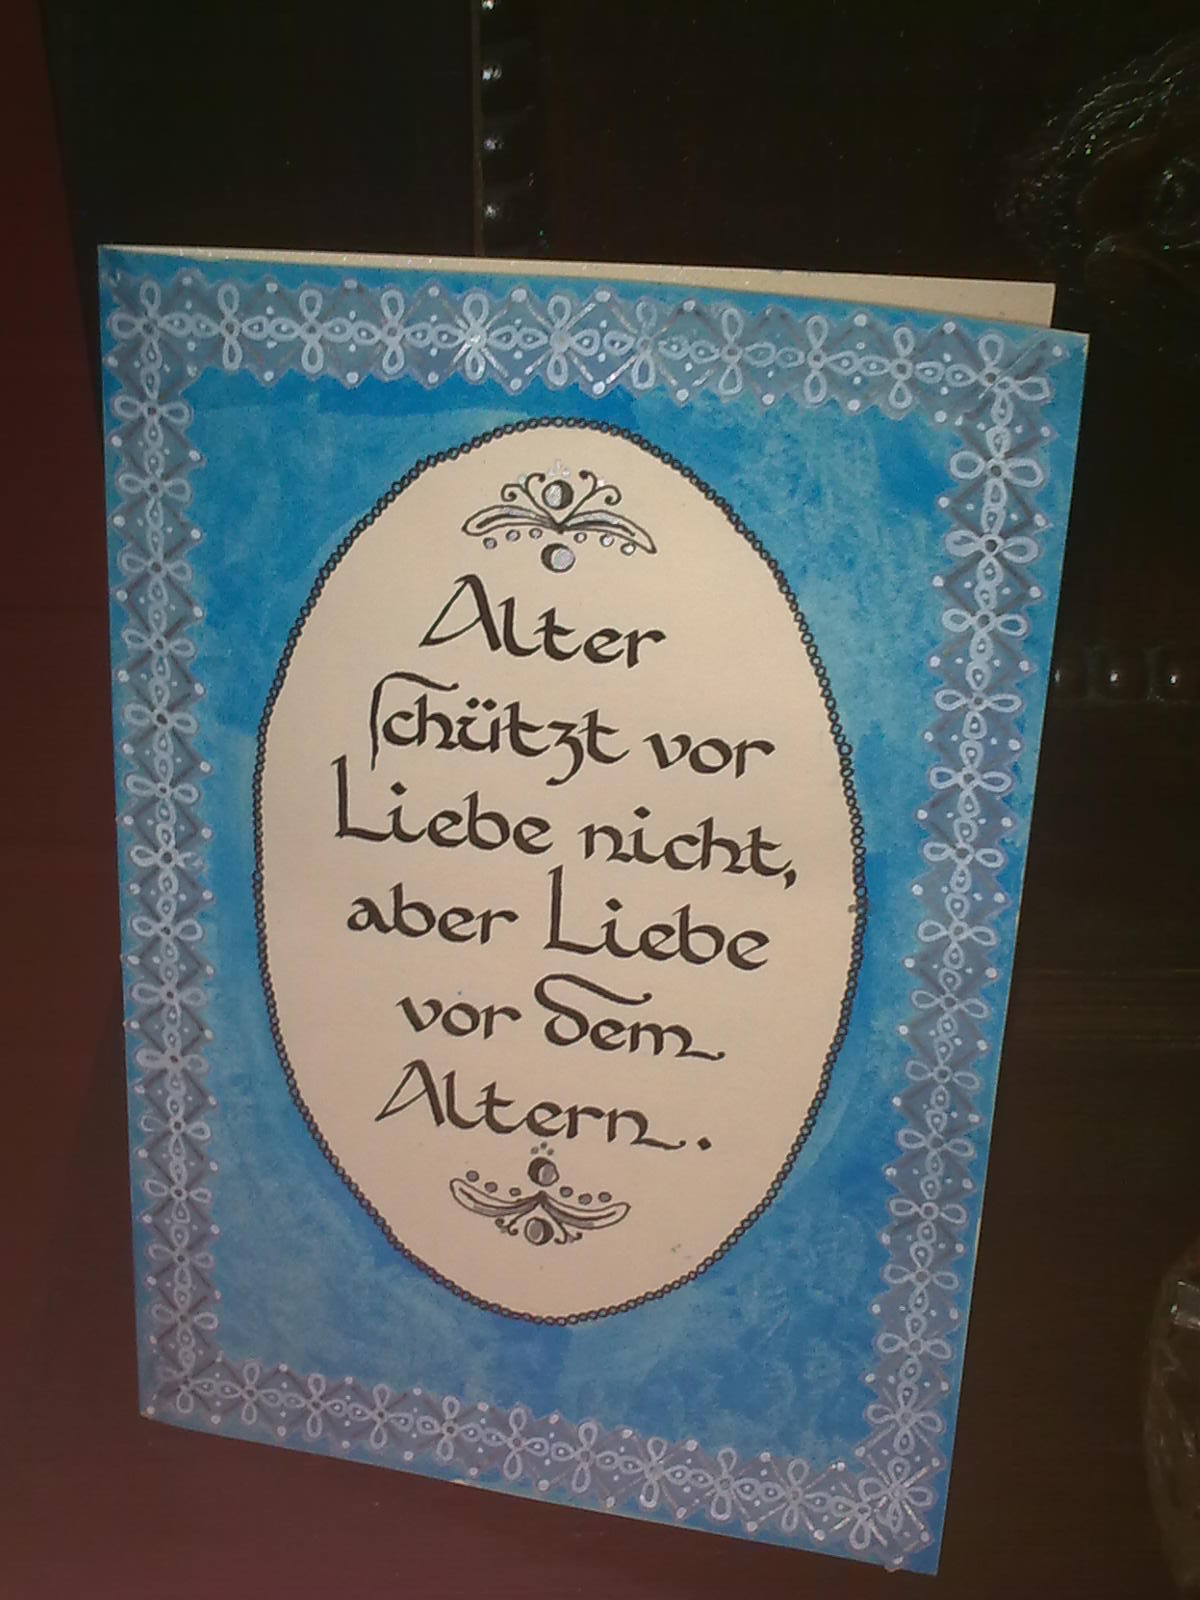 Alter
schützt vor
Liebe nicht,
aber Liebe
vor dem
Altern.